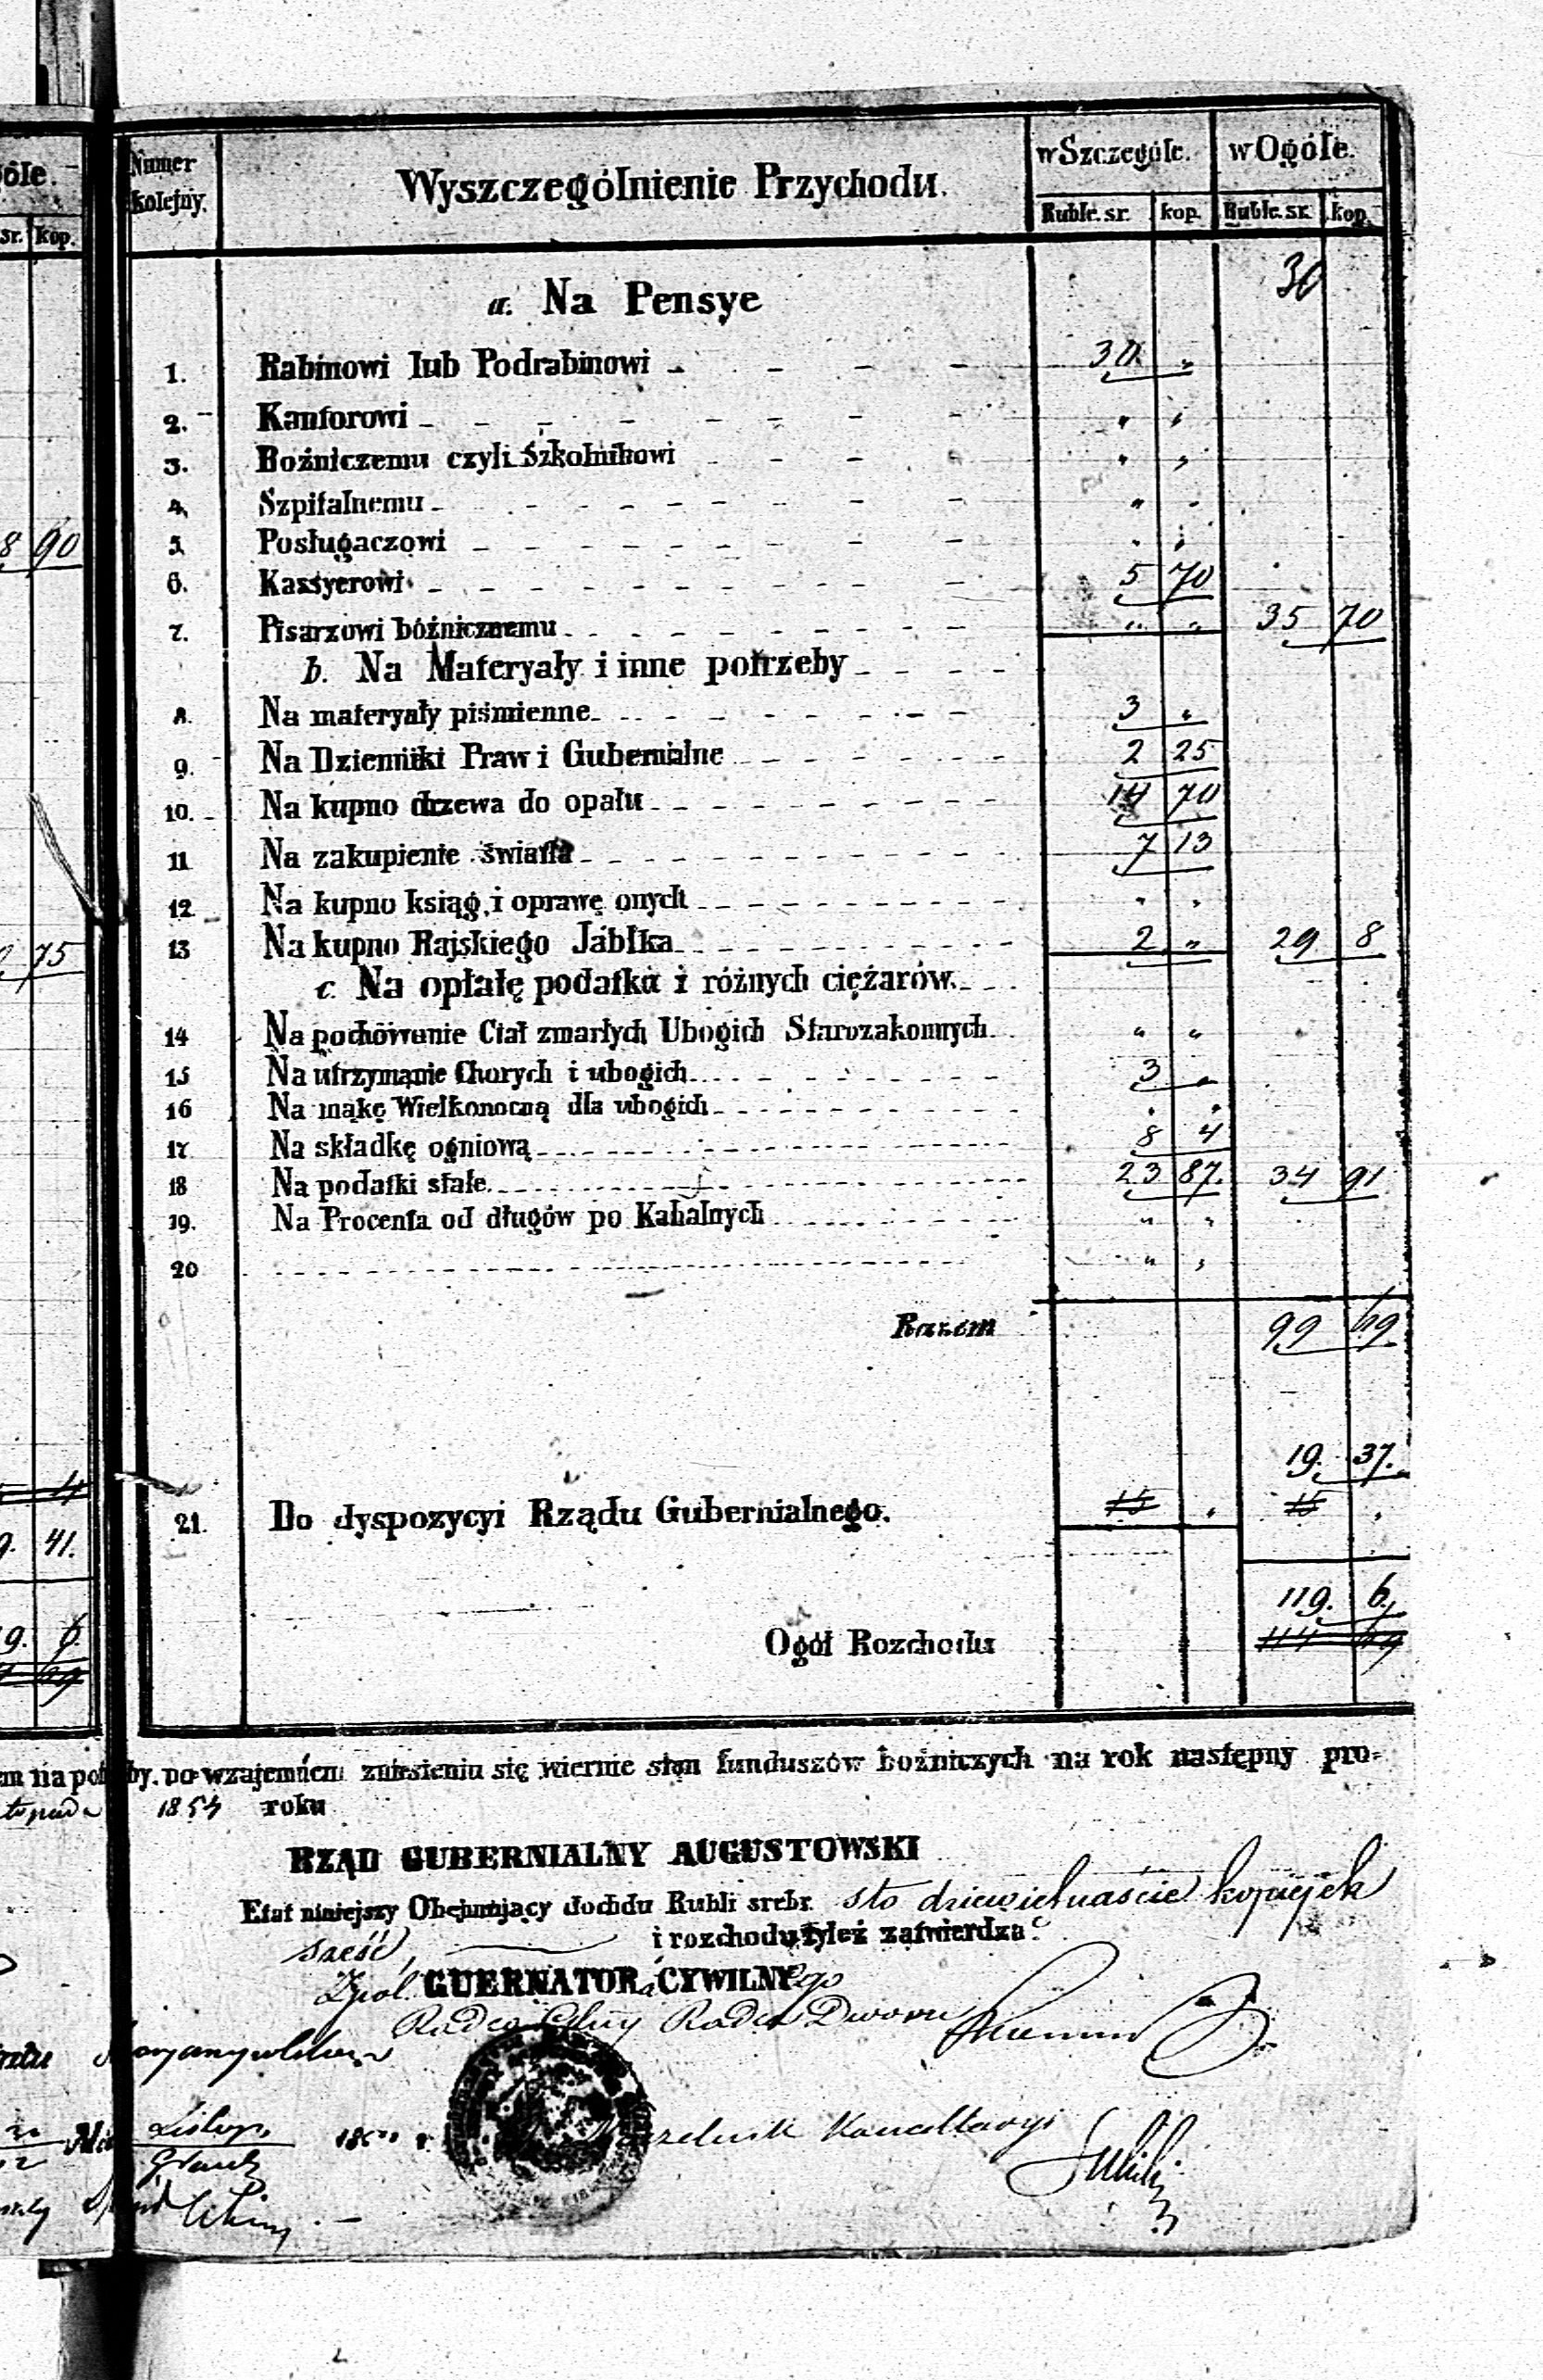 óle.
sr. kop.
8 90
75
4
9. 41.
19. 6.
69
Numer kolejny. Wyszczególnienie Przychodu. w Szczególe. w Ogóle.
Ruble. sr. kop. Ruble. sr. kop.
a. Na Pensye 30
1. Rabinowi lub Podrabinowi 30. "
2. Kantorowi " "
3. Bożniczemu czyli Szkolnikowi " "
4. Szpitalnemu " "
5. Posługaczowi " "
6. Kassyerowi 5 70
7. Pisarzowi bóżnicznemu " " 35 70
b. Na Materyały i inne potrzeby
8. Na materyały piśmienne 3 "
9. Na Dzienniki Praw i Gubernialne 2 25
10. Na kupno drzewa do opału 14 70
11 Na zakupienie światła 7 13
12 Na kupno ksiąg i oprawę onych " "
13 Na kupno Rajskiego Jabłka 2 " 29 8
c. Na opłatę podatku i różnych ciężarów.
14 Na pochówanie Ciał zmarłych Ubogich Starozakonnych " "
15 Na utrzymanie Chorych i ubogich 3 "
16 Na mąkę Wielkonocną dla ubogich " "
17 Na składkę ogniową 8 4
18 Na podatki stałe. 23 87. 34 91.
19. Na Procenta od długów po Kahalnych " "
20 " "
Razem 99 69
19. 37.
21. Do dyspozycyi Rządu Gubernialnego. 15 . 15 .
119. 6.
Ogół Rozchodu 114 69
po wzajemném zniesieniu się wiernie stan funduszów bożniczych na rok następny pro=
1854 roku
RZĄD GUBERNIALNY AUGUSTOWSKI
Etat niniejszy Obejmujący dochdu Rubli srebr. sto dziewiętnaście kopiejek
sześć, i rozchodu tyleż zatwierdza.
GUERNATOR CYWILNY
Radca Radca Dworu
Listop.
Kancellaryi